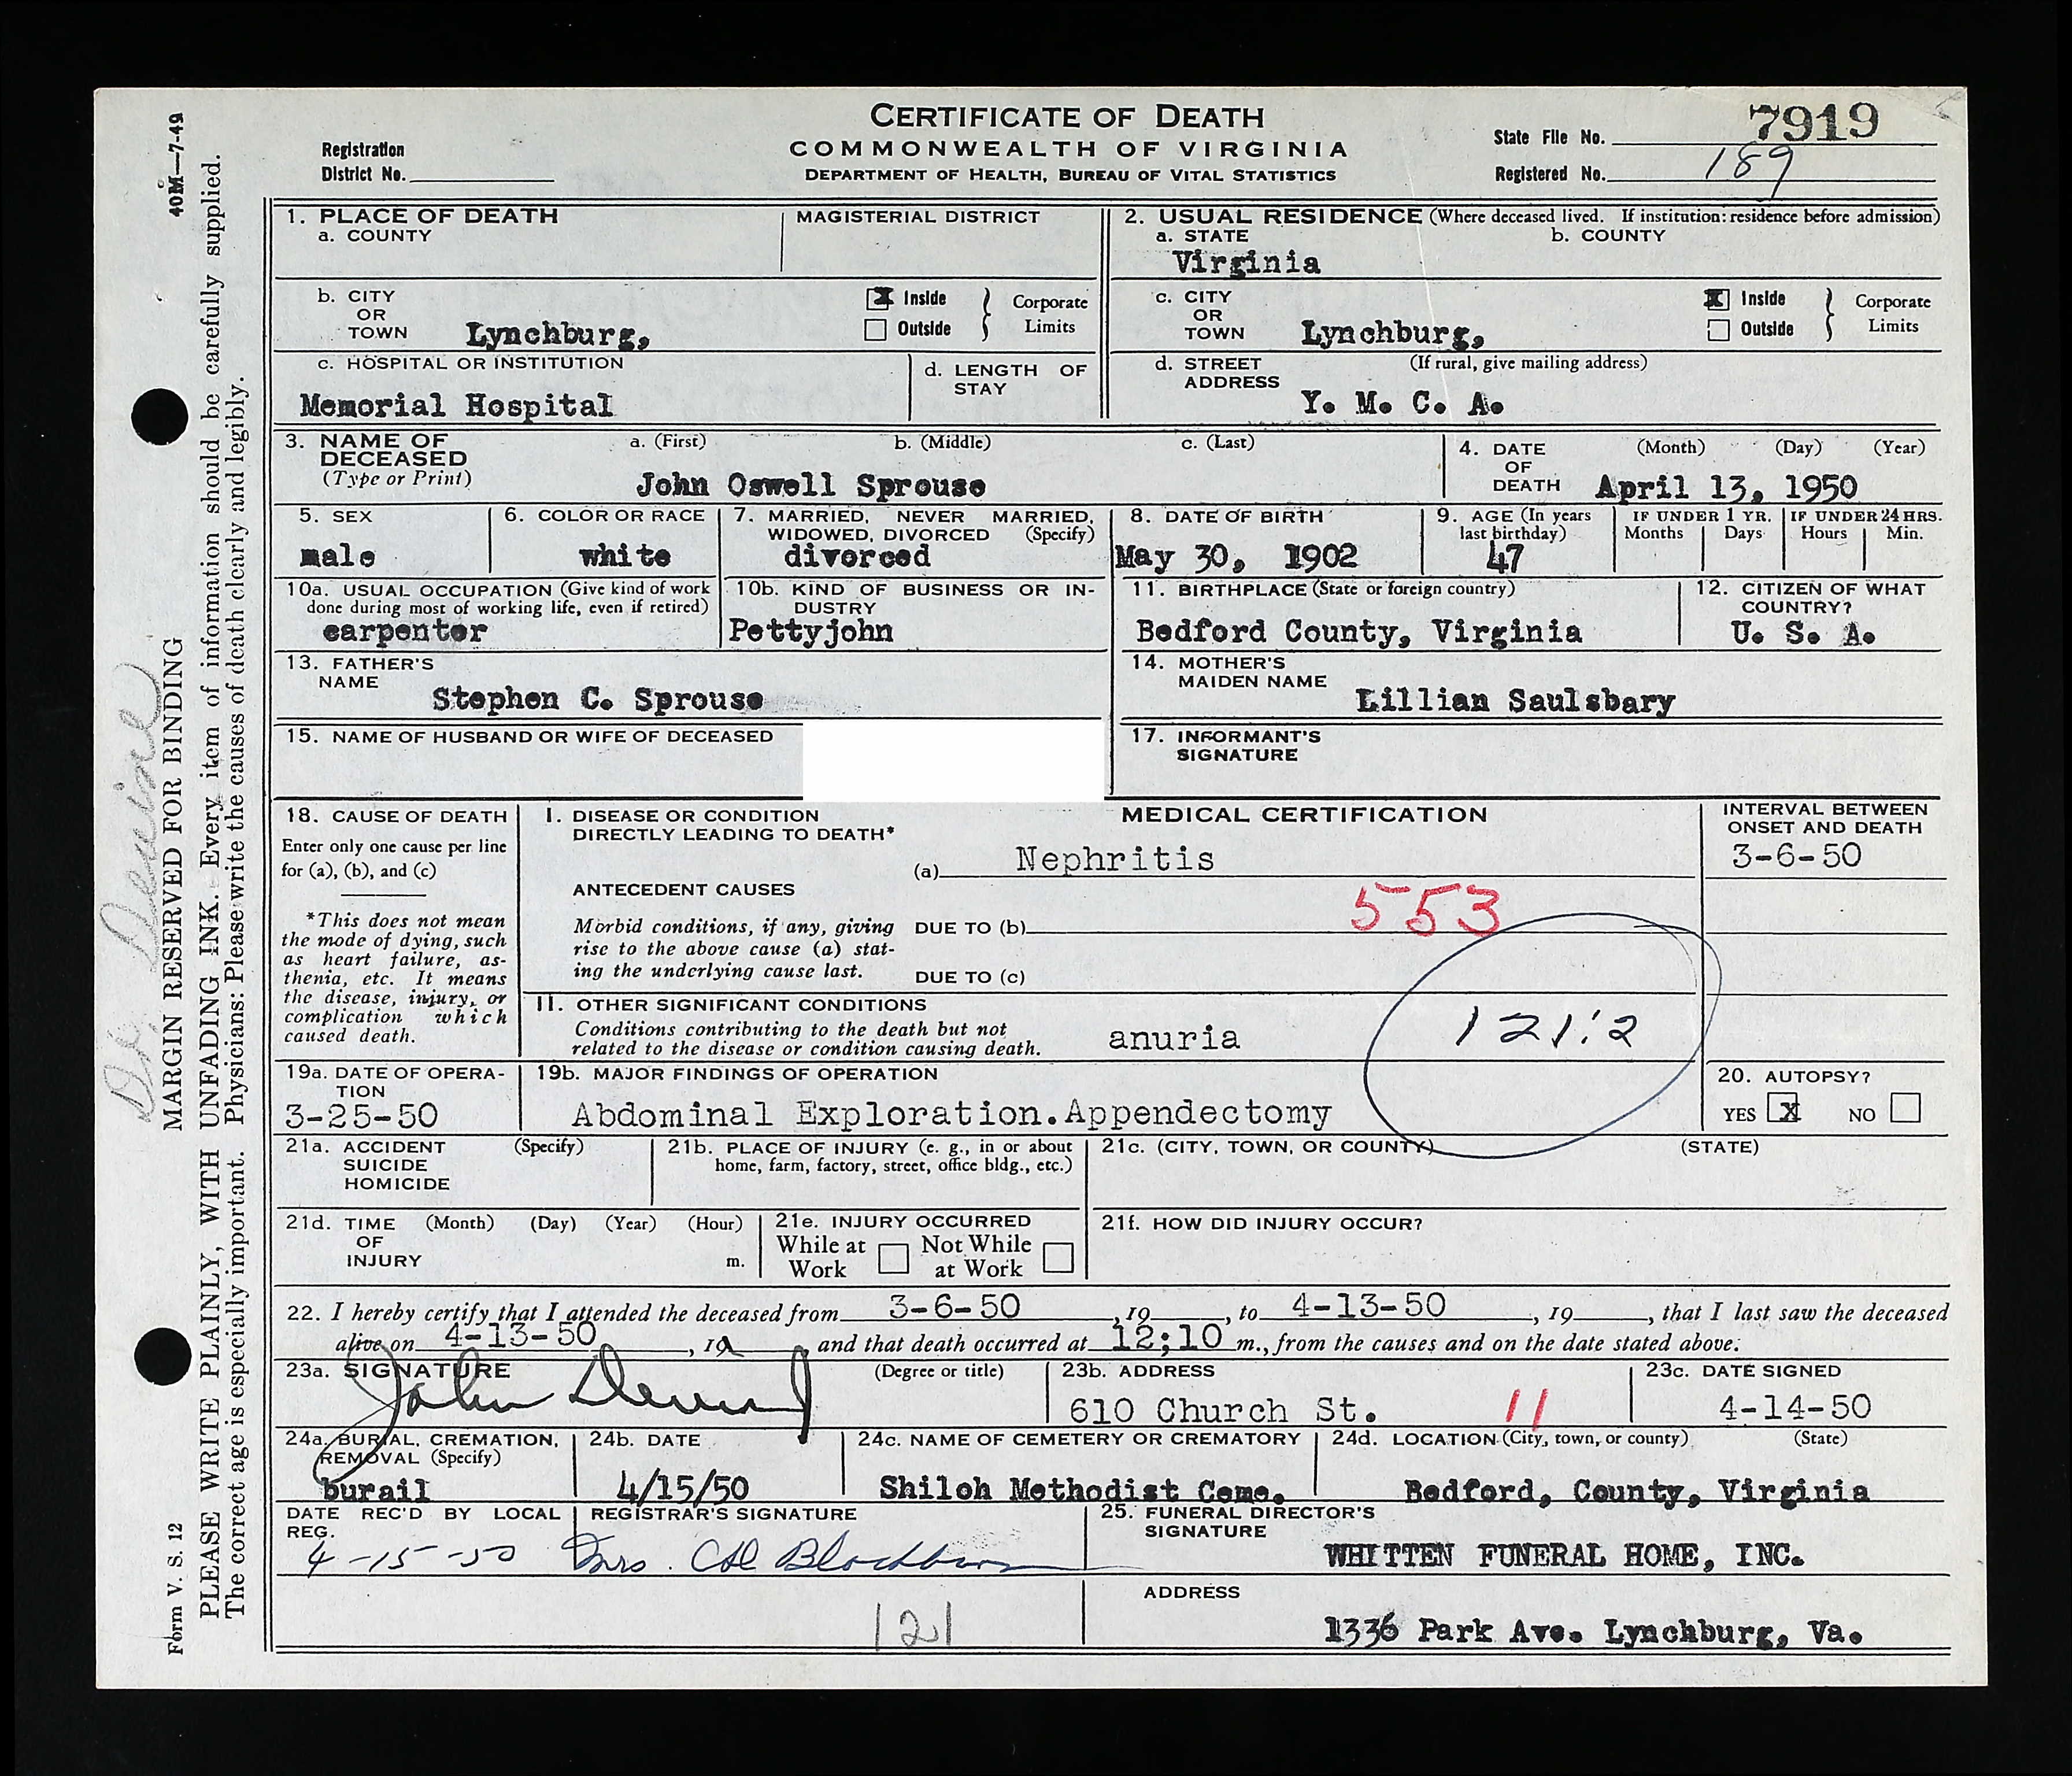 CERTIFICATE OF DEATH
COMMONWEALTH OF VIRGINIA
DEPARTMENT OF HEALTH, BUREAU OF VITAL STATISTICS
Registration
District No.
State File No. 7919
Registered No. 189
1. PLACE OF DEATH
a. COUNTY
MAGISTERIAL DISTRICT
2. USUAL RESIDENCE (Where deceased lived. If institution: residence before admission)
a. STATE b. COUNTY
Virginia
b. CITY OR TOWN Lynchburg,
X Inside
Outside
Corporate Limits
c. CITY OR TOWN Lynchburg,
X Inside
Outside
Corporate Limits
c. HOSPITAL OR INSTITUTION
Memorial Hospital
d. LENGTH OF STAY
d. STREET ADDRESS (If rural, give mailing address)
Y. M. C. A.
3. NAME OF DECEASED (Type or Print)
a. (First) b. (Middle) c. (Last)
John Oswell Sprouse
4. DATE OF DEATH (Month) (Day) (Year)
April 13, 1950
5. SEX
male
6. COLOR OR RACE
white
7. MARRIED, NEVER MARRIED, WIDOWED, DIVORCED (Specify)
divorced
8. DATE OF BIRTH
May 30, 1902
9. AGE (In years last birthday)
47
IF UNDER 1 YR.
Months Days
IF UNDER 24 HRS.
Hours Min.
10a. USUAL OCCUPATION (Give kind of work done during most of working life, even if retired)
carpenter
10b. KIND OF BUSINESS OR INDUSTRY
Pettyjohn
11. BIRTHPLACE (State or foreign country)
Bedford County, Virginia
12. CITIZEN OF WHAT COUNTRY?
U. S. A.
13. FATHER'S NAME
Stephen C. Sprouse
14. MOTHER'S MAIDEN NAME
Lillian Saulsbary
15. NAME OF HUSBAND OR WIFE OF DECEASED
17. INFORMANT'S SIGNATURE
18. CAUSE OF DEATH
Enter only one cause per line
for (a), (b), and (c)
*This does not mean
the mode of dying, such
as heart failure, as-
thenia, etc. It means
the disease, injury, or
complication which
caused death.
MEDICAL CERTIFICATION
I. DISEASE OR CONDITION
DIRECTLY LEADING TO DEATH*
(a) Nephritis
INTERVAL BETWEEN
ONSET AND DEATH
3-6-50
ANTECEDENT CAUSES
553
Morbid conditions, if any, giving
rise to the above cause (a) stat-
ing the underlying cause last.
DUE TO (b)
DUE TO (c)
II. OTHER SIGNIFICANT CONDITIONS
Conditions contributing to the death but not
related to the disease or condition causing death.
anuria
121:2
19a. DATE OF OPERATION
3-25-50
19b. MAJOR FINDINGS OF OPERATION
Abdominal Exploration.Appendectomy
20. AUTOPSY?
YES X NO
21a. ACCIDENT SUICIDE HOMICIDE (Specify)
21b. PLACE OF INJURY (e. g., in or about
home, farm, factory, street, office bldg., etc.)
21c. (CITY, TOWN, OR COUNTY) (STATE)
21d. TIME OF INJURY (Month) (Day) (Year) (Hour) m.
21e. INJURY OCCURRED
While at Work Not While at Work
21f. HOW DID INJURY OCCUR?
22. I hereby certify that I attended the deceased from 3-6-50, 19, to 4-13-50, 19, that I last saw the deceased
alive on 4-13-50, 19 and that death occurred at 12;10 m., from the causes and on the date stated above.
23a. SIGNATURE (Degree or title)
John Devine
23b. ADDRESS
610 Church St.
11
23c. DATE SIGNED
4-14-50
24a. BURIAL, CREMATION, REMOVAL (Specify)
burail
24b. DATE
4/15/50
24c. NAME OF CEMETERY OR CREMATORY
Shiloh Methodist Ceme.
24d. LOCATION (City, town, or county) (State)
Bedford, County, Virginia
DATE REC'D BY LOCAL REG.
4-15-50
REGISTRAR'S SIGNATURE
Mrs. Blackburn
25. FUNERAL DIRECTOR'S SIGNATURE
WHITTEN FUNERAL HOME, INC.
ADDRESS
1336 Park Ave. Lynchburg, Va.
121
40M—7-49
Dr. Devine
MARGIN RESERVED FOR BINDING
PLEASE WRITE PLAINLY, WITH UNFADING INK. Every item of information should be carefully supplied.
The correct age is especially important. Physicians: Please write the causes of death clearly and legibly.
Form V. S. 12